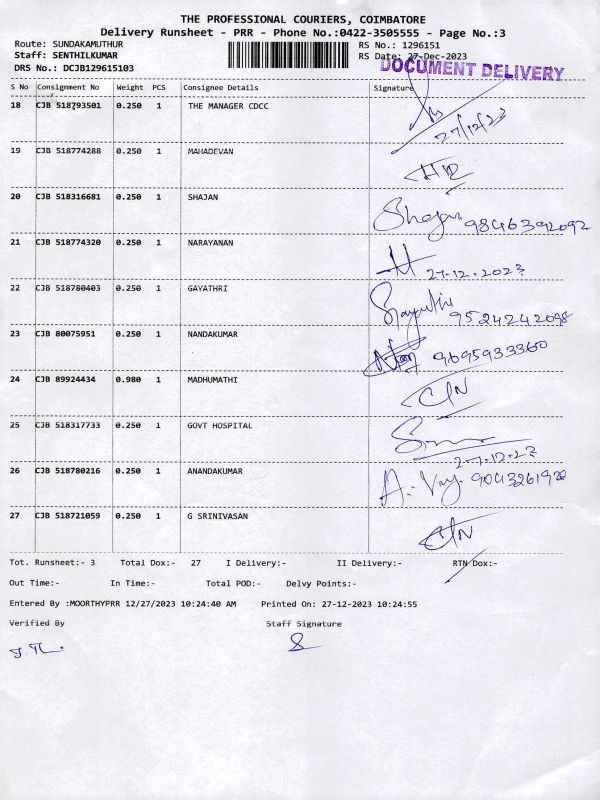 THE PROFESSIONAL COURIERS, COIMBATORE
Delivery Runsheet - PRR - Phone No.:0422-3505555 - Page No.:3
Route: SUNDAKAMUTHUR RS No.: 1296151
Staff: SENTHILKUMAR RS Date: 27-Dec-2023
DRS No.: DCJB129615103 DOCUMENT DELIVERY
S No Consignment No Weight PCS Consignee Details Signature
18 CJB 518793501 0.250 1 THE MANAGER CDCC
27/12/23
19 CJB 518774288 0.250 1 MAHADEVAN
20 CJB 518316681 0.250 1 SHAJAN
9846392092
21 CJB 518774320 0.250 1 NARAYANAN
27.12.2023
22 CJB 518780403 0.250 1 GAYATHRI
Gayathri 9524242098
23 CJB 80075951 0.250 1 NANDAKUMAR
9695933360
24 CJB 89924434 0.980 1 MADHUMATHI
25 CJB 518317733 0.250 1 GOVT HOSPITAL
27.12.23
26 CJB 518780216 0.250 1 ANANDAKUMAR
27 CJB 518721059 0.250 1 G SRINIVASAN
Tot. Runsheet:- 3 Total Dox:- 27 I Delivery:- II Delivery:- RTN Dox:-
Out Time:- In Time:- Total POD:- Delvy Points:-
Entered By :MOORTHYPRR 12/27/2023 10:24:40 AM Printed On: 27-12-2023 10:24:55
Verified By Staff Signature